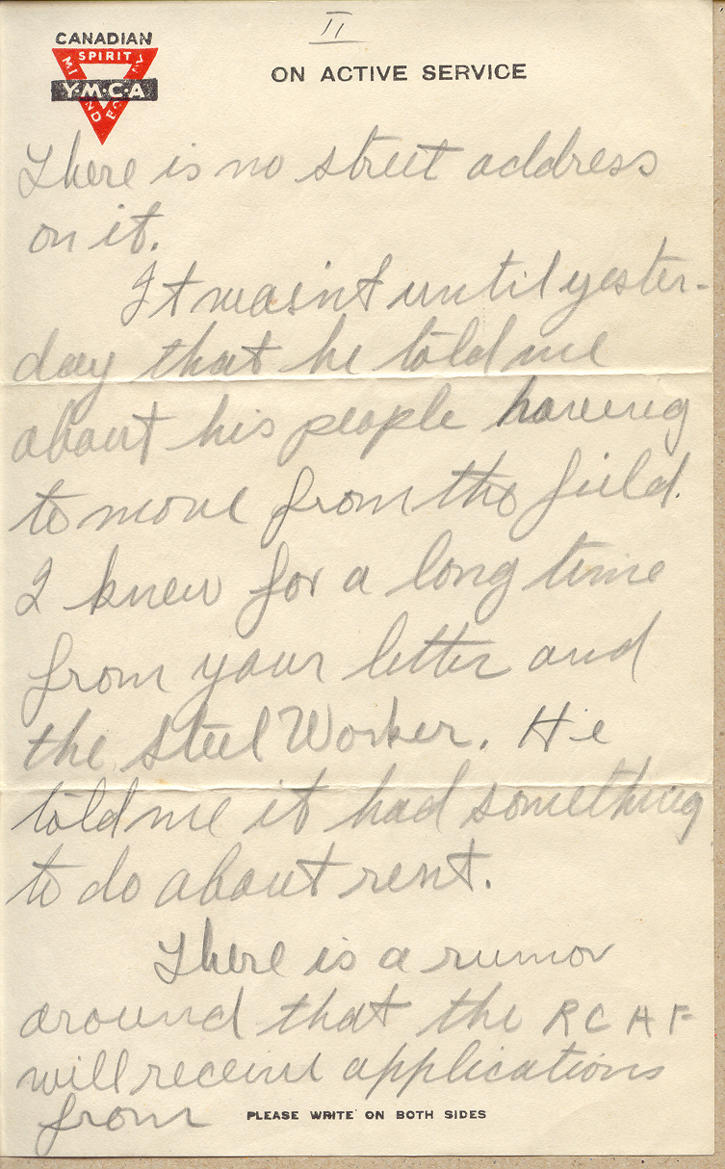 II
CANADIAN
SPIRIT
MIND
Y·M·C·A
ON ACTIVE SERVICE
There is no street address
on it.
It wasn't until yester-
day that he told me
about his people having
to move from the field.
I knew for a long time
from your letter and
the Steel Worker. He
told me it had something
to do about rent.
There is a rumor
around that the RCAF
will receive applications
from
PLEASE WRITE ON BOTH SIDES